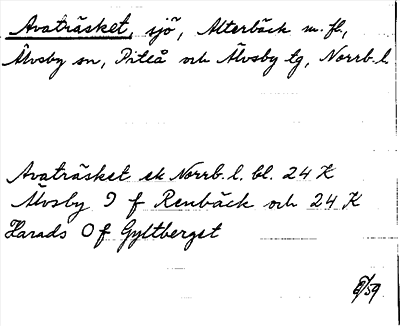 Avaträsket, sjö, Alterbäck m. fl.,
Älvsby sn, Piteå och Älvsby tg, Norrb. l.
Avaträsket ek Norrb. l. bl. 24 K
Älvsby 9 f Renbäck och 24 K
Harads 0 f Gyltberget
/59